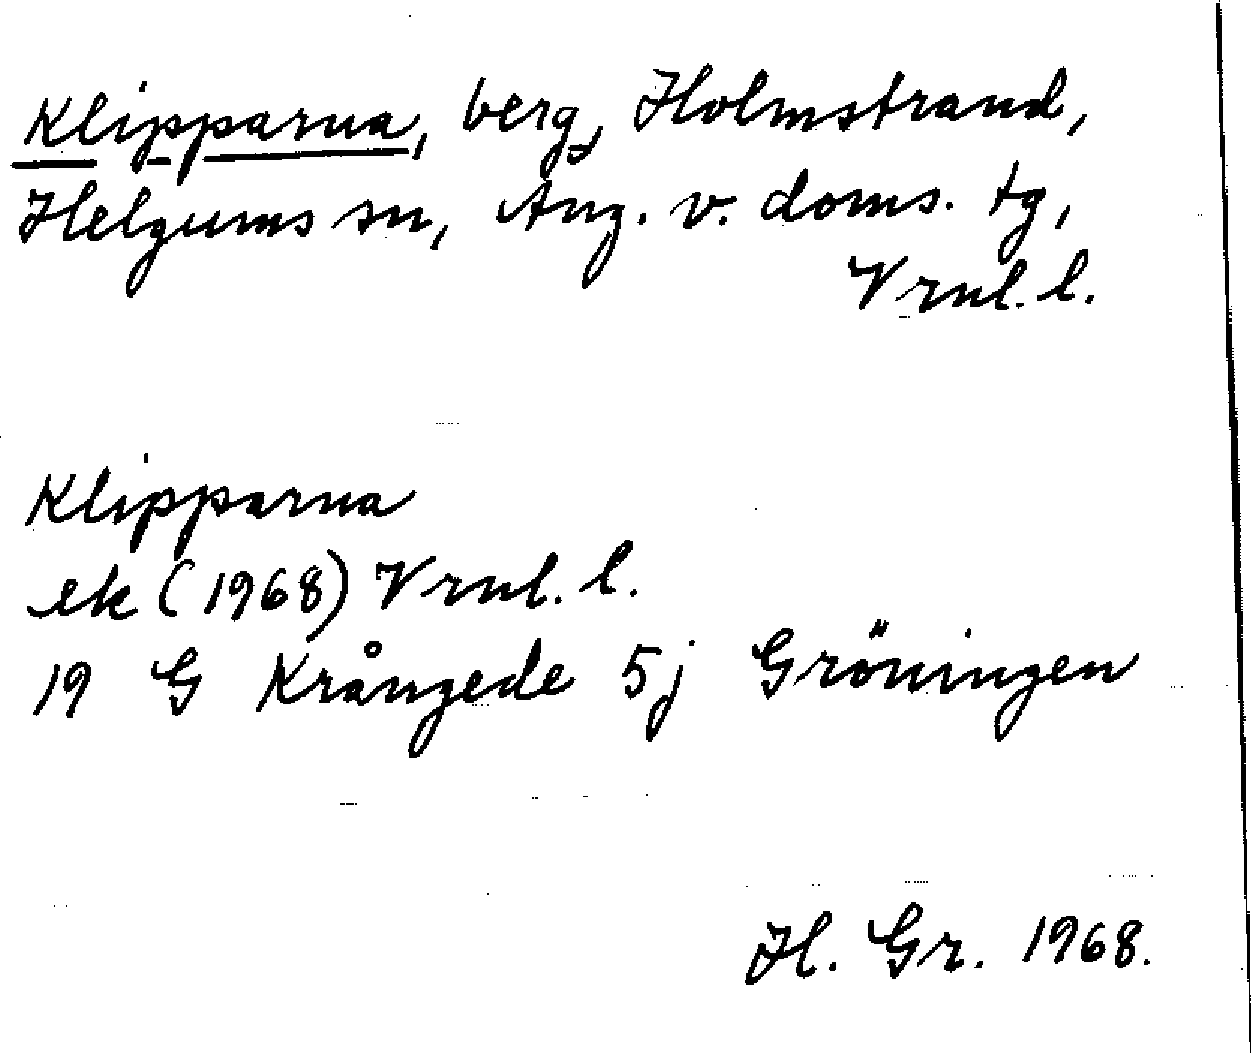 Klipparna, berg, Holmstrand,
Helgums sn, Ång. v. doms. tg,
Vrnl. l.
Klipparna
ek (1968) Vrnl. l.
19 G Krångede 5j Gröningen
H. Gr. 1968.